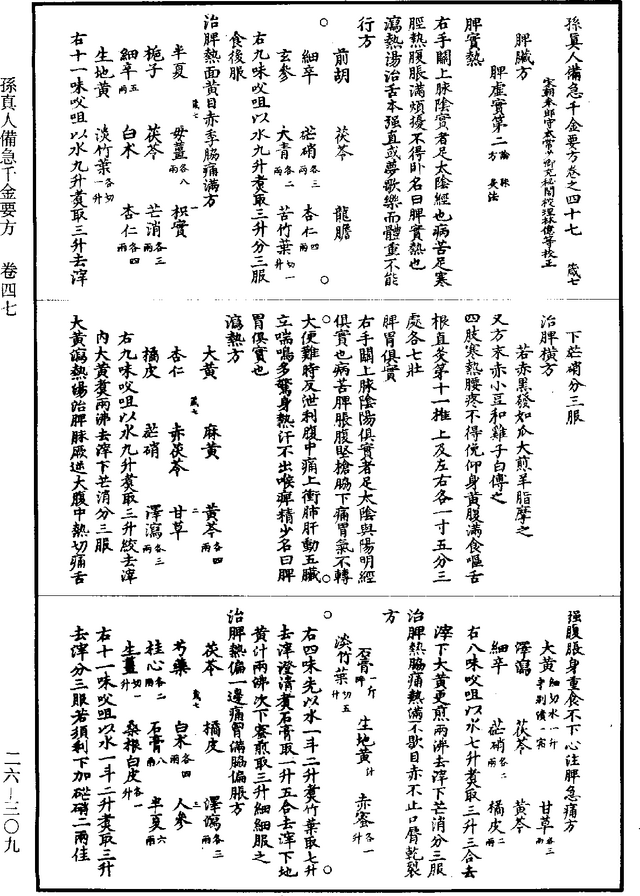 孫真人備急千金要方卷之四十七 歲七
宋朝奉郎守太常少卿充秘閣校理林億等校正
脾臟方
脾虛實第二 論 脉 方 灸法
脾實熱
右手關上脉陰實者足太陰經也病苦足寒
脛熱腹脹滿煩擾不得卧名曰脾實熱也
瀉熱湯治舌本强直或夢歌樂而體重不能
行方
前胡 茯苓 龍膽
細辛 芒硝各三兩 杏仁四兩
玄參 大青各二兩 苦竹葉切一升
右九味㕮咀以水九升煑取三升分三服
食後服
治脾熱面黄目赤季脇痛滿方
半夏 母薑各八兩 枳實
梔子 茯苓 芒消各三兩
細辛五兩 白术 杏仁各四兩
生地黄 淡竹葉各切一升
右十一味㕮咀以水九升煑取三升去滓
下芒硝分三服
治脾横方
若赤黑發如瓜大煎羊脂摩之
又方末赤小豆和雞子白傅之
四肢寒熱腰疼不得俛仰身黄腹滿食嘔舌
根直灸第十一椎上及左右各一寸五分三
處各七壯
脾胃俱實
右手關上脉陰陽俱實者足太陰與陽明經
俱實也病苦脾脹腹堅搶脇下痛胃氣不轉
大便難時反泄利腹中痛上衝肺肝動五臟
立喘鳴多驚身熱汗不出喉痺精少名曰脾
胃俱實也
瀉熱方
大黄 麻黄 黄芩各四兩
杏仁 赤茯苓 甘草
橘皮 芒硝 澤瀉各三兩
右九味㕮咀以水九升煑取三升絞去滓
内大黄煑兩沸去滓下芒消分三服
大黄瀉熱湯治脾脉厥逆大腹中熱切痛舌
强腹脹身重食不下心注脾急痛方
大黄細切水一升半别漬一宿 甘草各三兩
澤瀉 茯苓 黄芩
細辛 芒硝各二兩 橘皮二兩
右八味㕮咀以水七升煑取三升三合去
滓下大黄更煎兩沸去滓下芒消分三服
治脾熱脇痛熱滿不歇目赤不止口唇乾裂
方
石膏一斤碎 生地黄汁 赤蜜各一升
淡竹葉切五升
右四味先以水一斗二升煑竹葉取七升
去滓澄清煑石膏取一升五合去滓下地
黄汁兩沸次下蜜煎取三升細細服之
治脾熱偏一邊痛胃滿脇偏脹方
茯苓 橘皮 澤瀉各三兩
芍藥 白术各四兩 人參
桂心各二兩 石膏八兩 半夏六兩
生薑切一升 桑根白皮各一升
右十一味㕮咀以水一斗二升煑取三升
去滓分三服若須利下加芒硝二兩佳
孫真人備急千金要方 卷四七
二六—三〇九